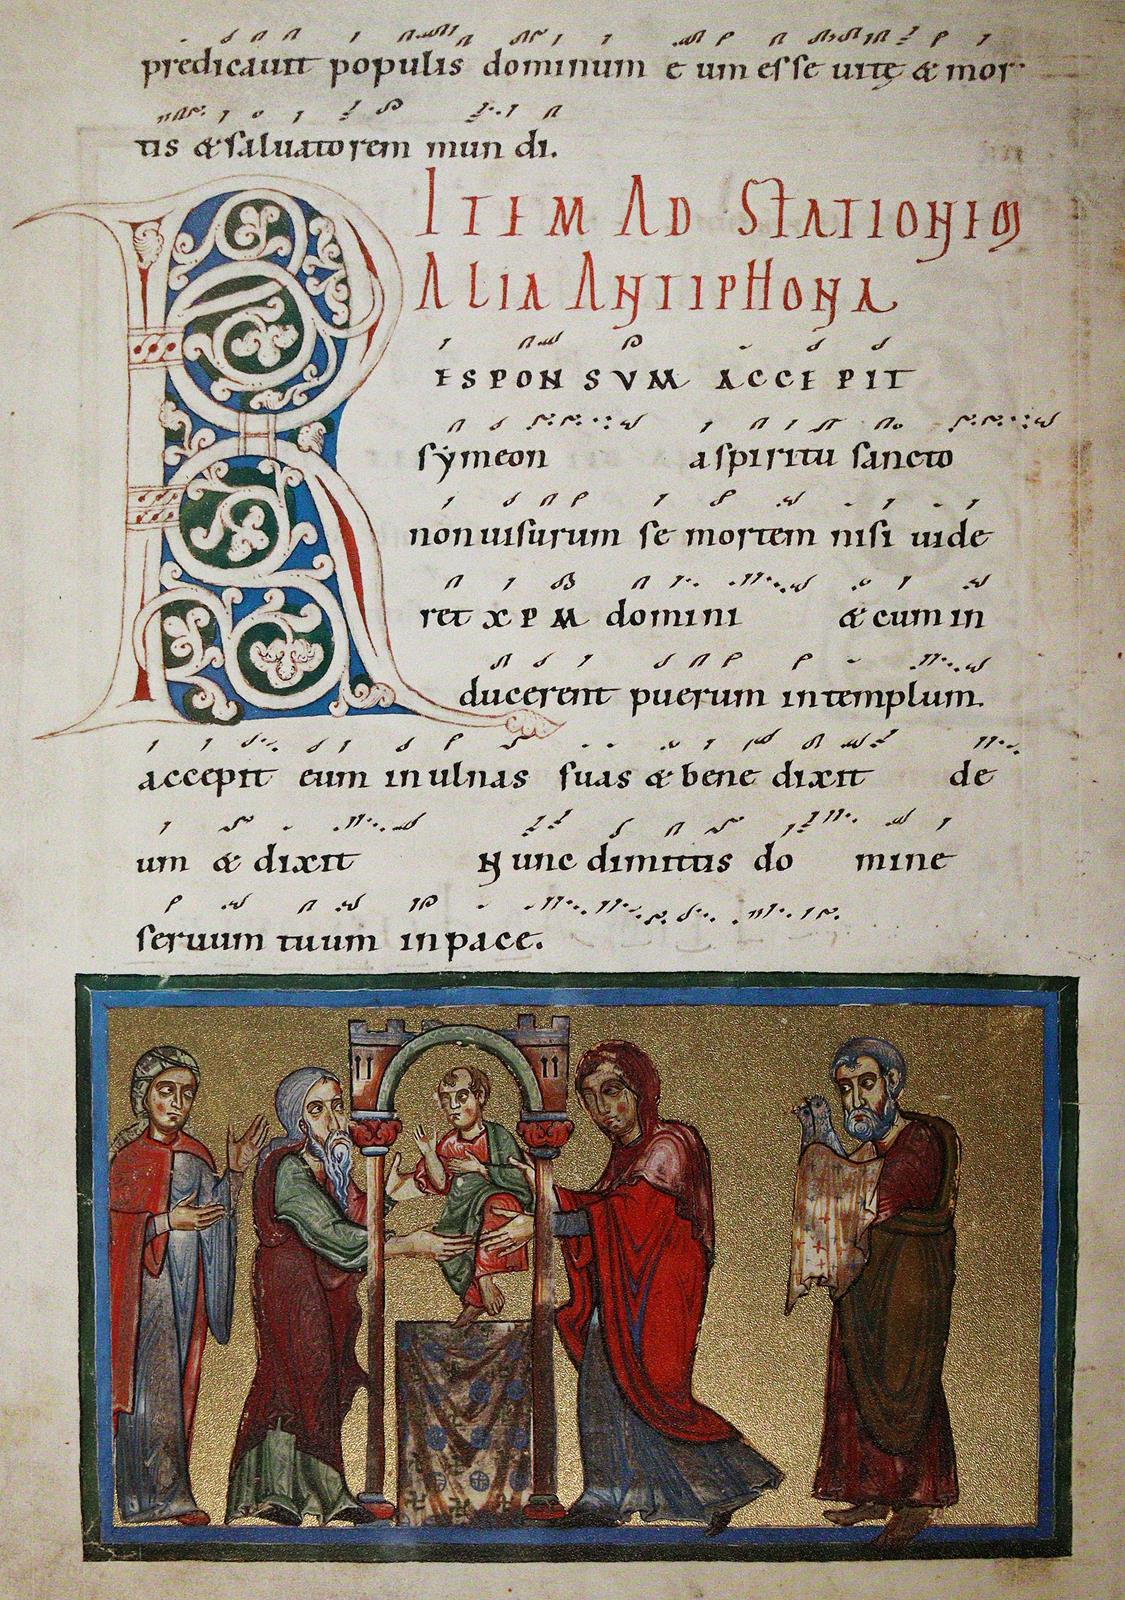 predicauit populis dominum e um esse uitę & mor
tis & saluatorem mun di.
ITEM AD STATIONEM
ALIA ANTIPHONA
RESPONSVM ACCEPIT
sẏmeon a spiritu sancto
non uisurum se mortem nisi uide
ret XPM domini & cum in
ducerent puerum in templum.
accepit eum in ulnas suas & bene dixit de
um & dixit Nunc dimittis do mine
seruum tuum in pace.